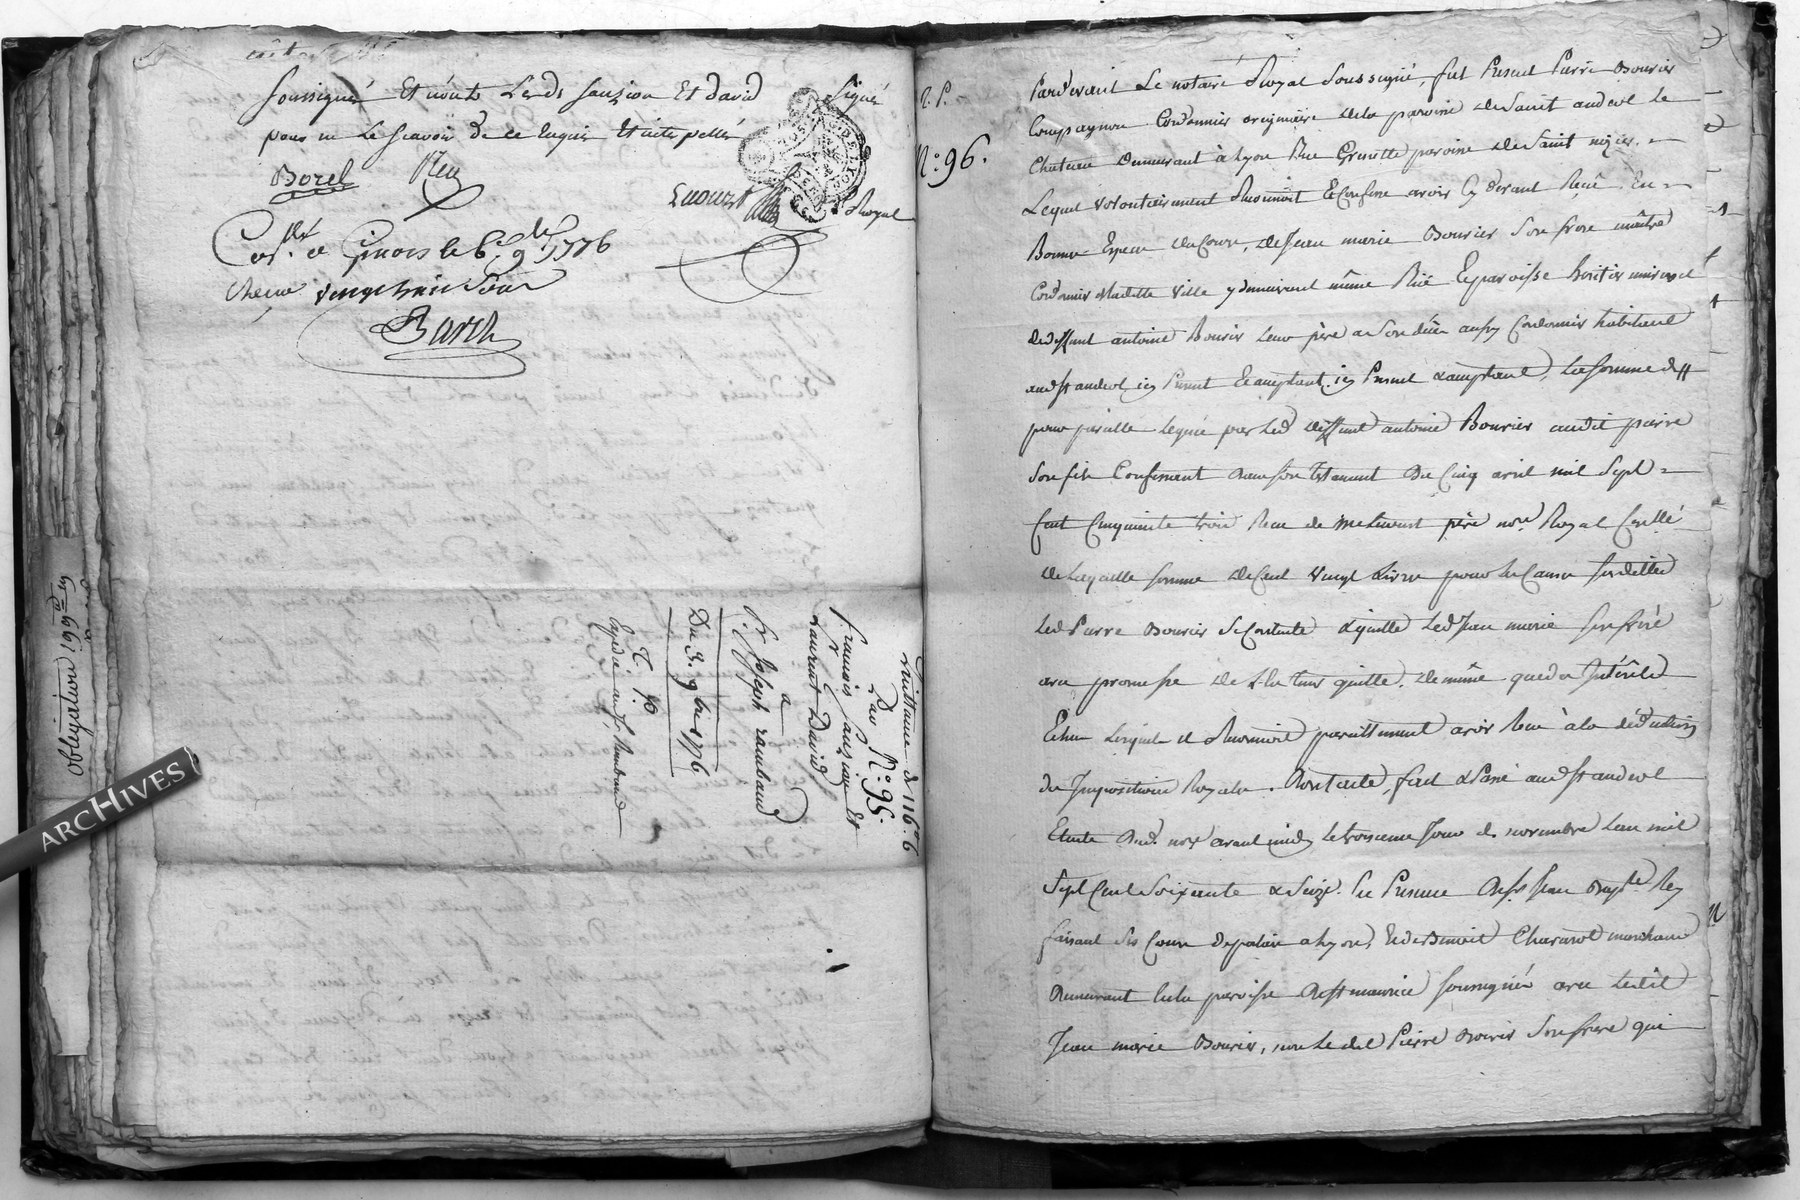 soussignés Et nonts Lesds sauzion Et david signés
pour ne le scavoir de ce Enquis Et interpellés
Borel Rey
Laourst Royal
Con.lé a Givors le 6.e 9.bre 1776
vingt huit sous
Barth
Quittance de 116.lt 6
Du N.o 95.
François sauzion Et
Laurent David
a
Sr. Joseph rambaud
Du 3. 9bre 1776
Expédié aud. s. Rambaud
obligation 199
ARCHIVES
N.o 96.
Pardevant Le notaire Royal soussigné, fut Present Pierre Bourier
Compagnon Cordonnier originaire de la paroisse de Saint andeol Le
Chateau Demeurant à Lyon Rue Grenette paroisse de Saint nizier. =
Lequel volontairement Reconnoit & Confesse avoir Cy devant Reçû En =
Bonnes Especes de Cours, de Jean marie Bourier son frere maitre
Cordonnier de ladite ville y demeurant même Rüe & paroisse heritier universel
de deffunt antoine Bourier Leur père a son décès aussy Cordonnier habitant
aud. st andeol icy Present & acceptant, icy Present & acceptant, La somme de
pour pareille Leguée par Led deffunt antoine Bourier audit pierre
son fils Confirmant dans son testament du Cinq avril mil sept =
Cent Cinquante trois Recu de me Laurent père nore Royal Conllé
de Laquelle somme de Cent vingt Livres pour Les Causes susdittes
Led Pierre Bourier se Contente & quitte Led Jean marie son frére
avec promesse de L'en tenir quitte, de même que des Intérêts
Echus Lesquels il Reconnoit pareillement avoir Reçu à la déduction
des Impositions Royales. Dont acte, fait & Passé aud st andeol
Etude dud. nore avant midy le troisieme Jour de novembre Lan mil
sept Cent soixante & seize. En Presence de sr Jean Bapte Rey
faisant ses Cours de palais a Lyon, & de Benoit Charavol marchand
Demeurant En la paroisse de st maurice soussignés avec Ledit
Jean marie Bourier, non Led Pierre Bourier son frere qui